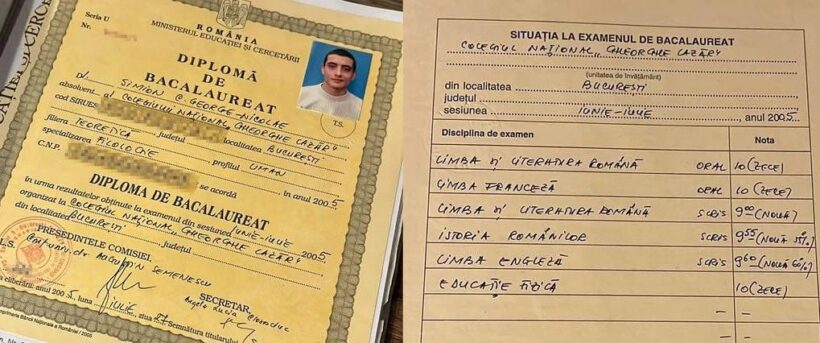 Seria U
Nr.
ROMÂNIA
MINISTERUL EDUCAȚIEI ȘI CERCETĂRII
DIPLOMĂ
DE
BACALAUREAT
T.S.
Dl. SIMION C. GEORGE-NICOLAE
absolvent al COLEGIULUI NAȚIONAL „GHEORGHE LAZĂR”
cod SIRUES localitatea BUCUREȘTI
județul
filiera TEORETICĂ profilul UMAN
specializarea FILOLOGIE în anul 2005
C.N.P. se acordă
DIPLOMA DE BACALAUREAT
în urma rezultatelor obținute la examenul din sesiunea IUNIE-IULIE 2005
organizat la COLEGIUL NAȚIONAL „GHEORGHE LAZĂR”
din localitatea BUCUREȘTI județul
PREȘEDINTELE COMISIEI,
L.S. SEMENESCU
SECRETAR,
eliberării: anul 2005, luna IULIE, ziua Semnătura titularului
Imprimeria Băncii Naționale a României / 2005
SITUAȚIA LA EXAMENUL DE BACALAUREAT
COLEGIUL NAȚIONAL „GHEORGHE LAZĂR”
(unitatea de învățământ)
din localitatea BUCUREȘTI
județul
sesiunea IUNIE-IULIE, anul 2005.
Disciplina de examen Nota
LIMBA ȘI LITERATURA ROMÂNĂ ORAL 10 (ZECE)
LIMBA FRANCEZĂ ORAL 10 (ZECE)
LIMBA ȘI LITERATURA ROMÂNĂ SCRIS 9 00 (NOUĂ)
ISTORIA ROMÂNILOR SCRIS 9 55 (NOUĂ 55%)
LIMBA ENGLEZĂ SCRIS 9 60 (NOUĂ 60%)
EDUCAȚIE FIZICĂ 10 (ZECE)
– –
– –